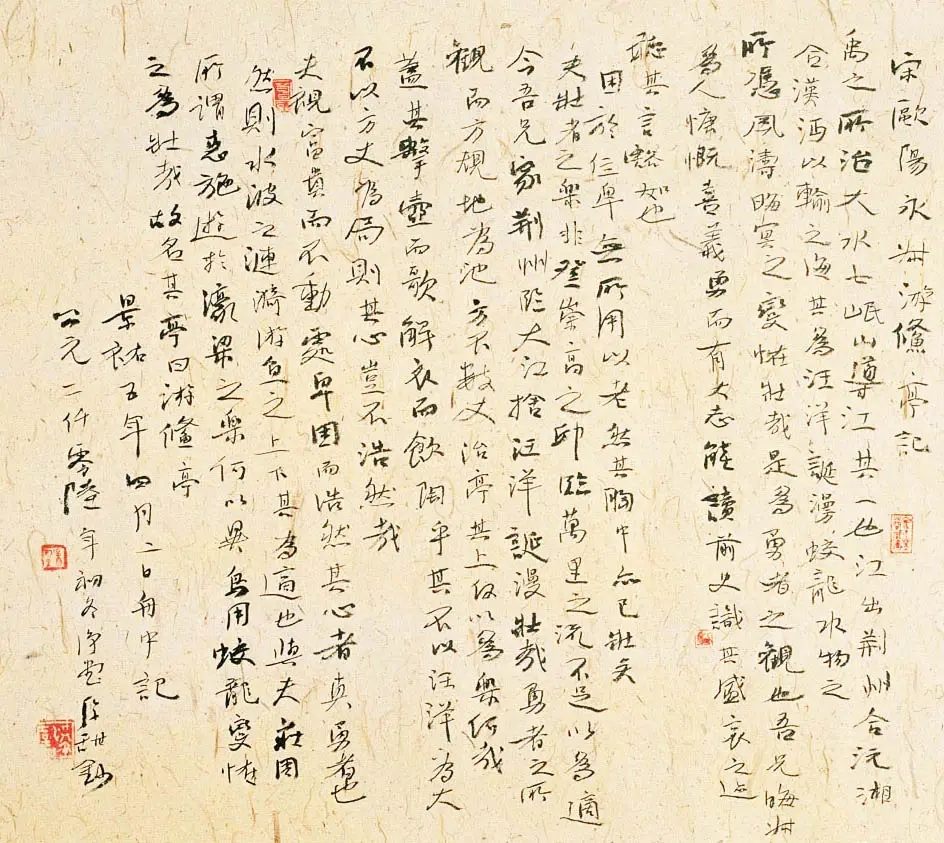 宋歐陽永叔游鯈亭記
禹之所治大水七岷山導江其一也江出荆州合沅湘
合漢沔以輸之海其為汪洋誕漫蛟龍水物之
所憑風濤晦冥之變怪壯哉是為勇者之觀也吾兄晦叔
為人慷慨喜義勇而有大志能讀前史識其盛衰之迹
聽其言豁如也
困於位卑無所用以老然其胸中亦已壯矣
夫壯者之樂非登崇高之邱臨萬里之流不足以為適
今吾兄家荆州臨大江捨汪洋誕漫壯哉勇者之所
觀而方規地為池方不數丈治亭其上反以為樂何哉
蓋其擊壺而歌解衣而飲陶乎其不以汪洋為大
不以方丈為局則其心豈不浩然哉
夫視富貴而不動處卑困而浩然其心者真勇者也
然則水波之漣漪游魚之上下其為適也與夫莊周
所謂惠施遊於濠梁之樂何以異烏用蛟龍變怪
之為壯哉故名其亭曰游鯈亭
景祐五年四月二日舟中記
公元二仟零陸年初冬